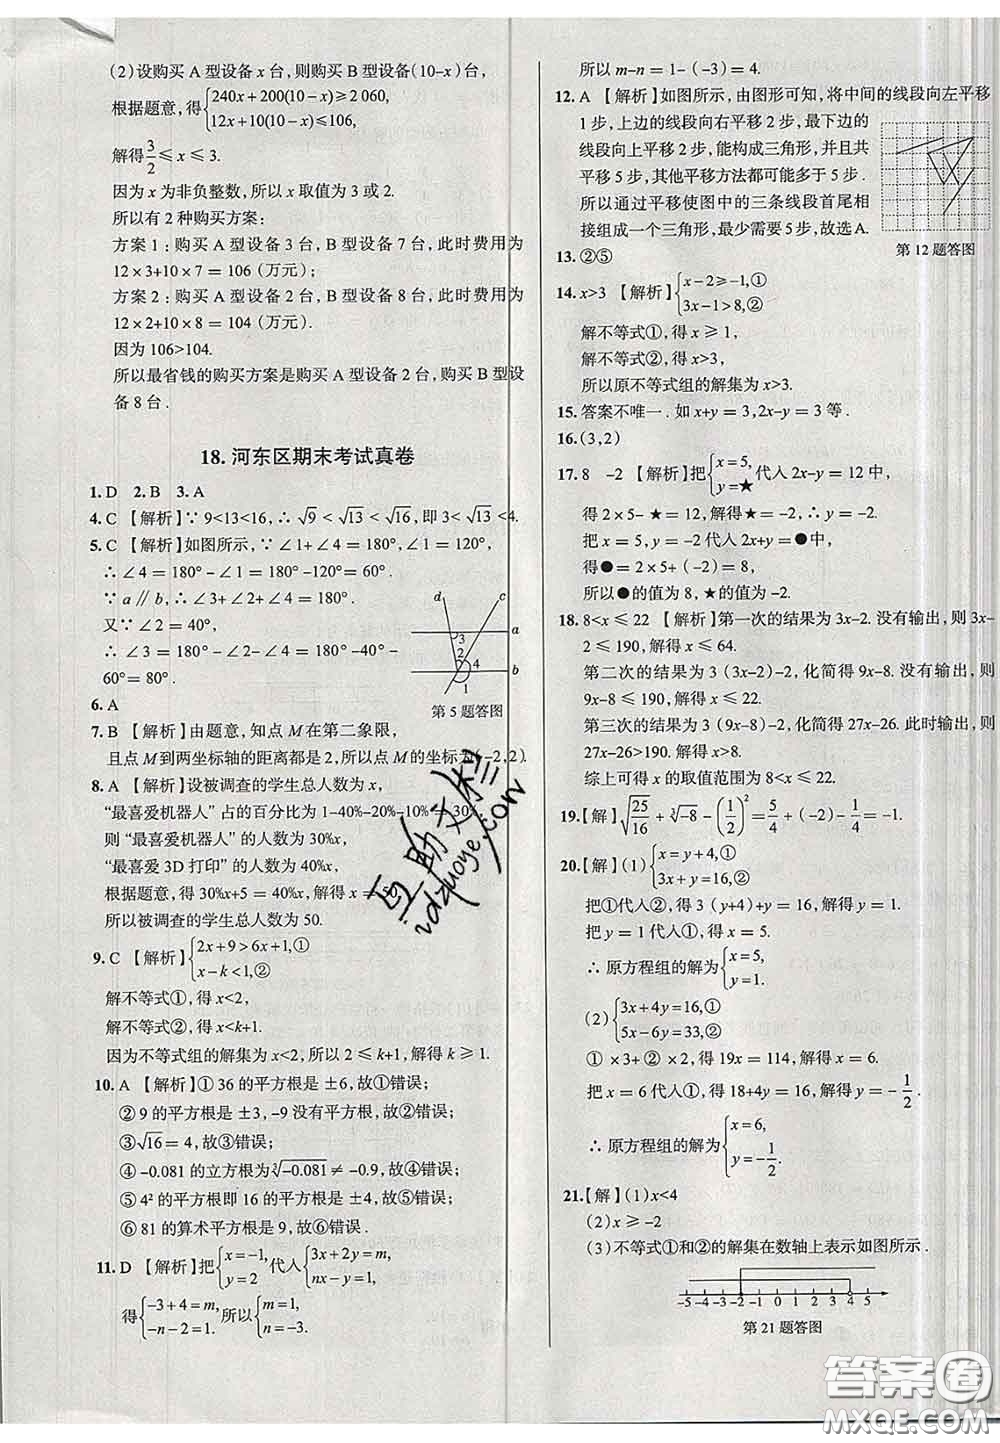 (2)设购买 A 型设备 x 台，则购买 B 型设备(10-x)台，
根据题意，得{240x+200(10-x)≥2 060,
12x+10(10-x)≤106,
解得3/2≤x≤3.
因为 x 为非负整数，所以 x 取值为 3 或 2.
所以有 2 种购买方案：
方案 1：购买 A 型设备 3 台，B 型设备 7 台，此时费用为
12×3+10×7=106(万元)；
方案 2：购买 A 型设备 2 台，B 型设备 8 台，此时费用为
12×2+10×8=104(万元).
因为 106>104.
所以最省钱的购买方案是购买 A 型设备 2 台，购买 B 型设
备 8 台.
18. 河东区期末考试真卷
1. D 2. B 3. A
4. C 【解析】∵9<13<16，∴√9<√13<√16，即 3<√13<4.
5. C 【解析】如图所示，∵∠1+∠4=180°，∠1=120°，
∴∠4=180°-∠1=180°-120°=60°.
∵a∥b，∴∠3+∠2+∠4=180°.
又∵∠2=40°，
∴∠3=180°-∠2-∠4=180°-40°-
60°=80°.
d c
3 a
2
4 b
1
第 5 题答图
6. A
7. B 【解析】由题意，知点 M 在第二象限，
且点 M 到两坐标轴的距离都是 2，所以点 M 的坐标为(-2,2).
8. A 【解析】设被调查的学生总人数为 x，
“最喜爱机器人”占的百分比为 1-40%-20%-10%=30%，
则“最喜爱机器人”的人数为 30%x，
“最喜爱 3D 打印”的人数为 40%x，
根据题意，得 30%x+5=40%x，解得 x=50，
所以被调查的学生总人数为 50.
9. C 【解析】{2x+9>6x+1,①
x-k<1,②
解不等式①，得 x<2，
解不等式②，得 x<k+1.
因为不等式组的解集为 x<2，所以 2≤k+1，解得 k≥1.
10. A 【解析】①36 的平方根是 ±6，故①错误；
②9 的平方根是 ±3，-9 没有平方根，故②错误；
③√16=4，故③错误；
④-0.081 的立方根为∛-0.081≠-0.9，故④错误；
⑤4² 的平方根即 16 的平方根是 ±4，故⑤错误；
⑥81 的算术平方根是 9，故⑥错误.
11. D 【解析】把{x=-1,
y=2 代入{3x+2y=m,
nx-y=1,
得{-3+4=m,
-n-2=1. 所以{m=1,
n=-3.
所以 m-n=1-(-3)=4.
12. A 【解析】如图所示，由图形可知，将中间的线段向左平移
1 步，上边的线段向右平移 2 步，最下边的
线段向上平移 2 步，能构成三角形，并且共
平移 5 步，其他平移方法都可能多于 5 步.
所以通过平移使图中的三条线段首尾相
接组成一个三角形，最少需要 5 步，故选 A.
第 12 题答图
13. ②⑤
14. x>3 【解析】{x-2≥-1,①
3x-1>8,②
解不等式①，得 x≥1，
解不等式②，得 x>3，
所以原不等式组的解集为 x>3.
15. 答案不唯一. 如 x+y=3,2x-y=3 等.
16. (3,2)
17. 8 -2 【解析】把{x=5,
y=★ 代入 2x-y=12 中，
得 2×5-★=12，解得★=-2.
把 x=5，y=-2 代入 2x+y=●中，
得●=2×5+(-2)=8，
所以●的值为 8，★的值为 -2.
18. 8<x≤22 【解析】第一次的结果为 3x-2. 没有输出，则 3x-
2≤190，解得 x≤64.
第二次的结果为 3(3x-2)-2，化简得 9x-8. 没有输出，则
9x-8≤190，解得 x≤22.
第三次的结果为 3(9x-8)-2，化简得 27x-26. 此时输出，则
27x-26>190. 解得 x>8.
综上可得 x 的取值范围为 8<x≤22.
19. 【解】√25/16+∛-8-(1/2)²=5/4+(-2)-1/4=-1.
20. 【解】(1){x=y+4,①
3x+y=16,②
把①代入②，得 3(y+4)+y=16，解得 y=1.
把 y=1 代入①，得 x=5.
∴原方程组的解为{x=5,
y=1.
(2){3x+4y=16,①
5x-6y=33,②
①×3+②×2，得 19x=114，解得 x=6.
把 x=6 代入①，得 18+4y=16，解得 y=-1/2.
∴原方程组的解为{x=6,
y=-1/2.
21. 【解】(1)x<4
(2)x≥-2
(3)不等式①和②的解集在数轴上表示如图所示.
-5 -4 -3 -2 -1 0 1 2 3 4 5
第 21 题答图
互助文栏
idzuoye.com
答案圈
MXQE.COM